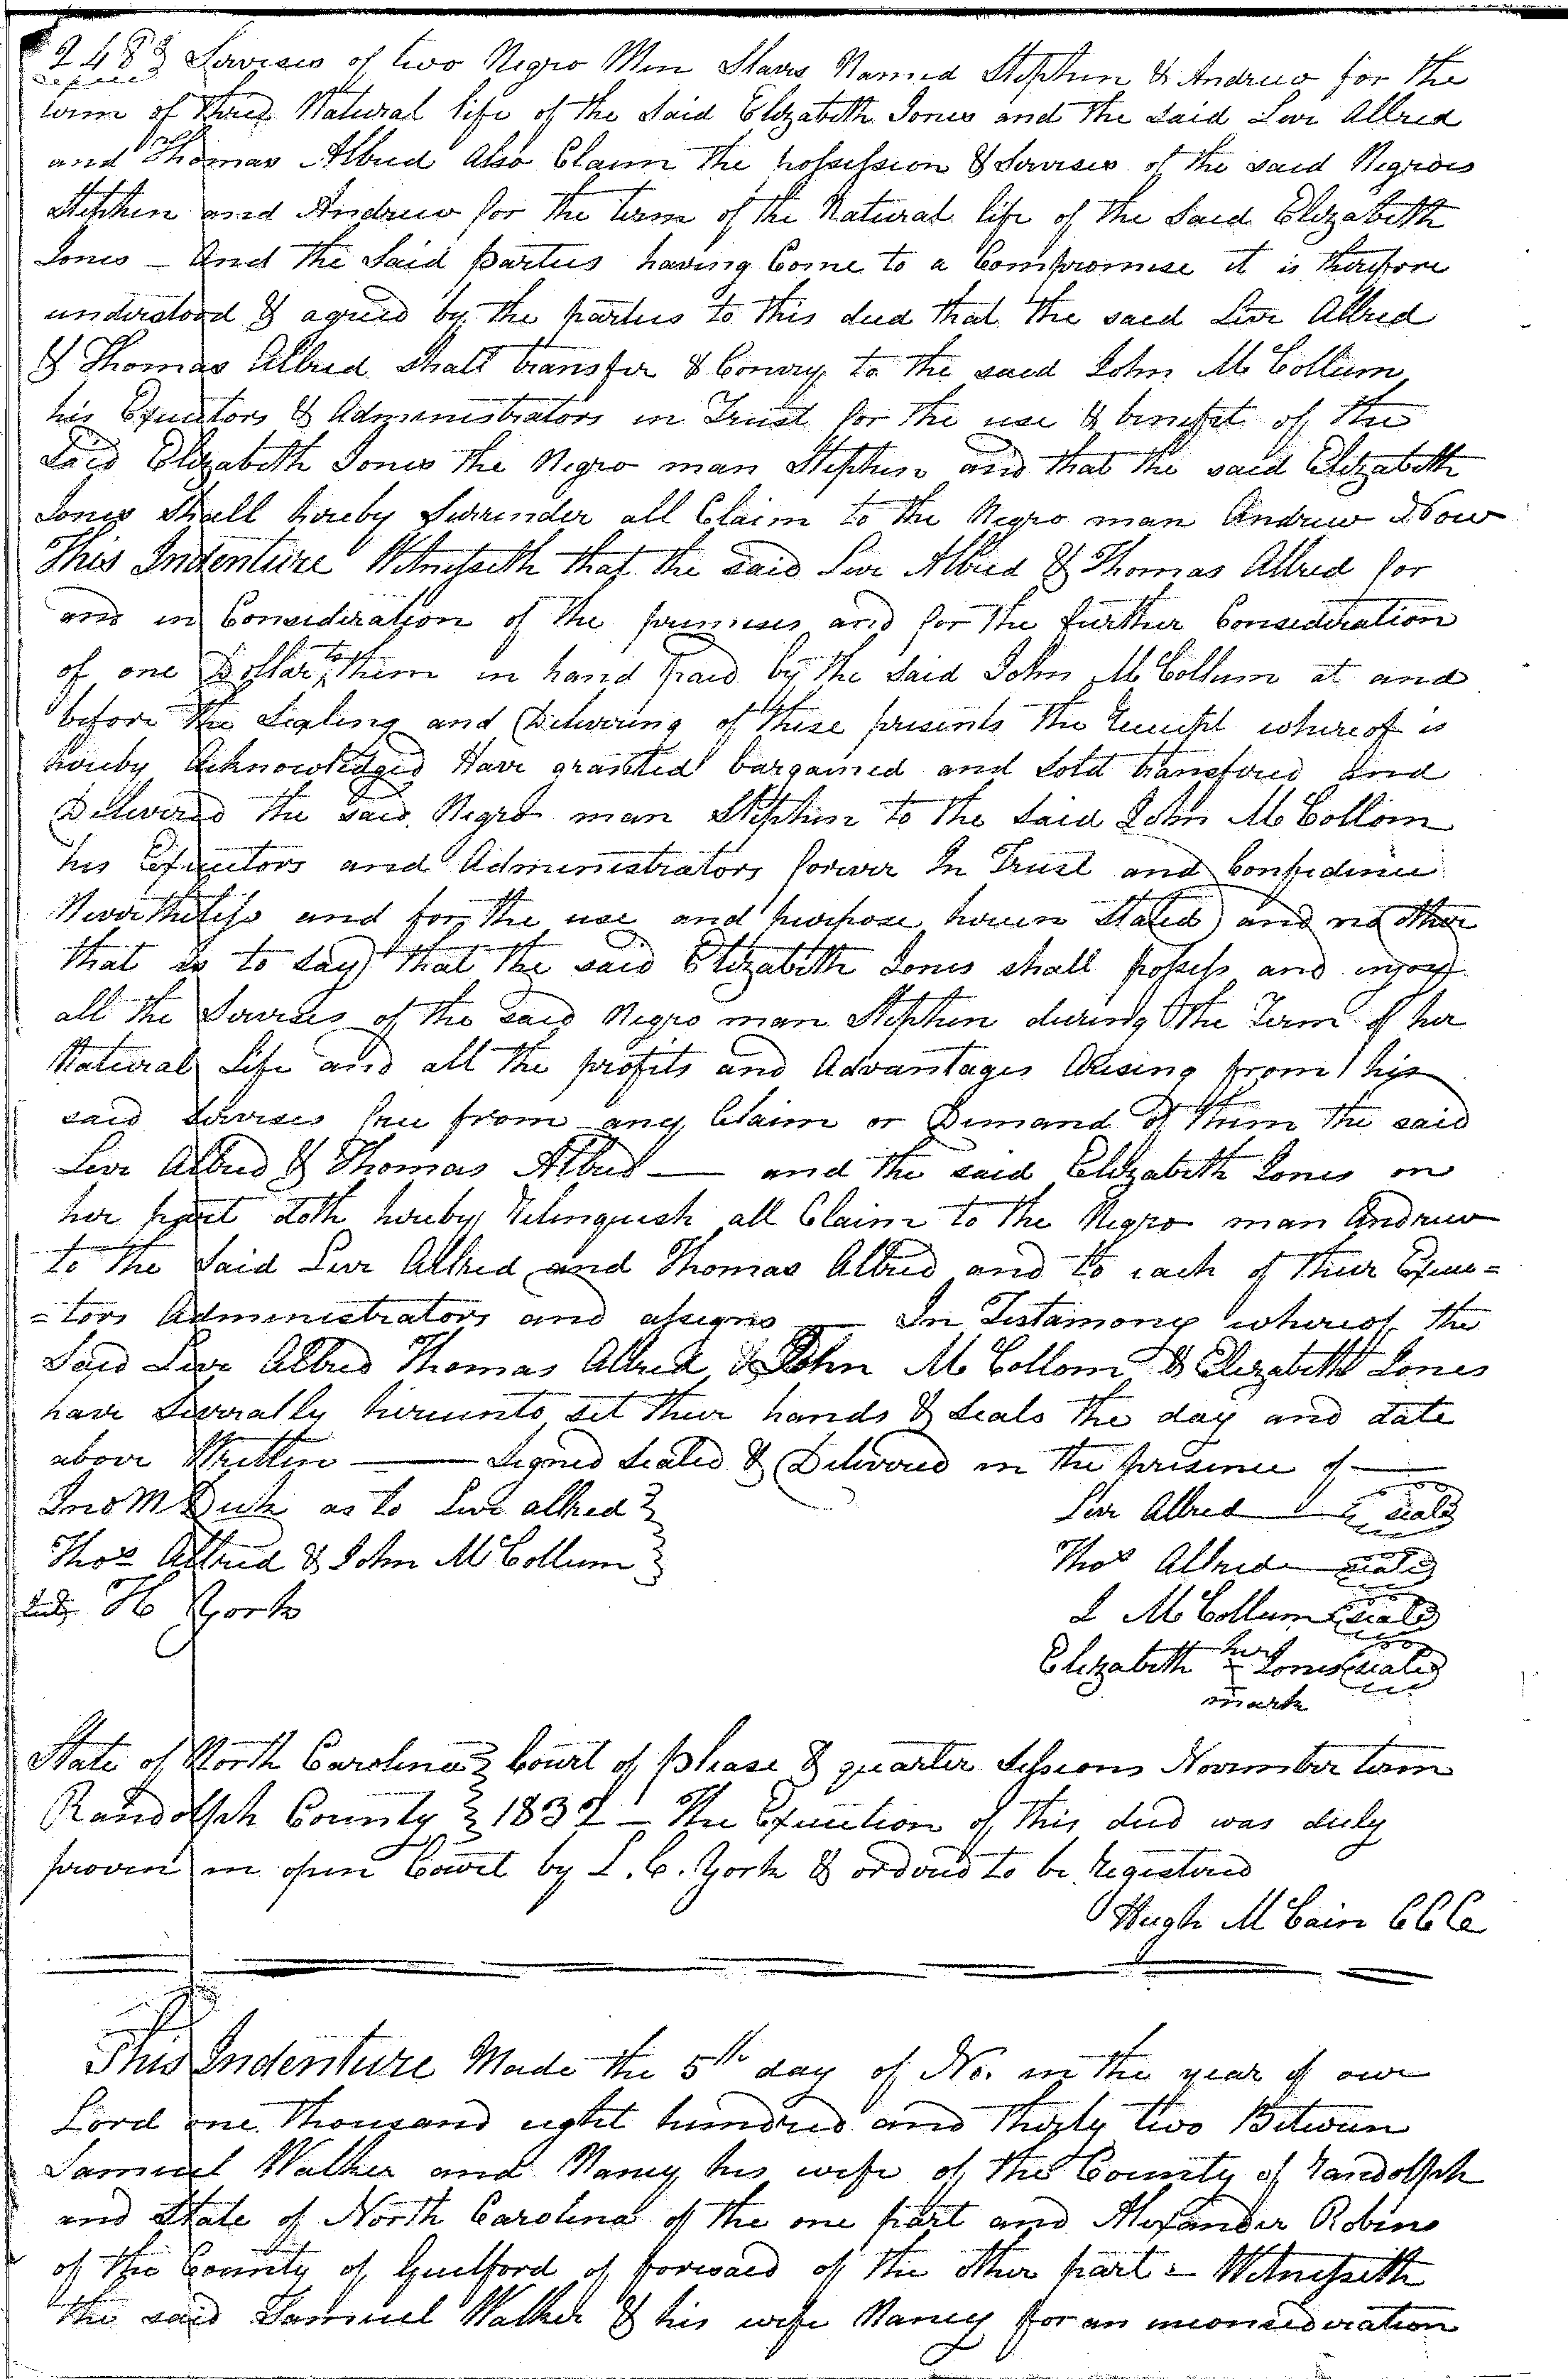 248 Services of two Negro Men Slaves Named Stephen & Andrew for the
term of Natural life of the Said Elizabeth Jones and the said Levi Allred
and Thomas Allred Also Claim the possession & Services of the said Negroes
Stephen and Andrew for the term of the Natural life of the Said Elizabeth
Jones – And the Said parties having Come to a Compromise it is therefore
understood & agreed by the parties to this deed that the said Levi Allred
& Thomas Allred Shall transfer & Convey to the said John McCollum
his Executors & Administrators in Trust for the use & benefit of the
Said Elizabeth Jones the Negro man Stephen and that the said Elizabeth
Jones Shall hereby Surrender all Claim to the Negro man Andrew Now
This Indenture Witnesseth that the said Levi Allred & Thomas Allred for
and in Consideration of the premises and for the further Consideration
of one Dollar to them in hand paid by the said John McCollum at and
before the Sealing and Delivering of these presents the Receipt whereof is
hereby Acknowledged Have granted bargained and Sold transfered and
Delivered the said Negro man Stephen to the said John McCollom
his Executors and Administrators forever In Trust and Confidence
Nevertheless and for the use and purpose herein Stated and no other
that is to Say that the said Elizabeth Jones shall possess and injoy
all the Services of the said Negro man Stephen during the Term of her
Natural Life and all the profits and Advantages Arising from his
said Services free from any Claim or Demand of them the said
Levi Allred & Thomas Allred — and the said Elizabeth Jones on
her part doth hereby Relinquish all Claim to the Negro man Andrew
to the Said Levi Allred and Thomas Allred and to each of their Execu=
=tors Administrators and assigns — In Testamony whereof the
Said Levi Allred Thomas Allred & John McCollom & Elizabeth Jones
have Severally hereunto set their hands & Seals the day and date
above Written — Signed Sealed & Delivered in the presence of —
Jno M Dick as to Levi allred Levi Allred seal
Thos Allred & John McCollum Thos Allred seal
H York J McCollum seal
Elizabeth her x Jones seal
mark
State of North Carolina Court of please & quarter Sessions November term
Randolph County 1832 – The Execution of this deed was duly
proven in open Court by L. C. York & ordered to be Registered
Hugh McCain CCC
This Indenture Made the 5th day of No. in the year of our
Lord one Thousand eight hundred and Thirty two Between
Samuel Walker and Nancy his wife of the County of Randolph
and State of North Carolina of the one part and Alexander Robins
of the County of Guilford of foresaid of the other part = Witnesseth
the said Samuel Walker & his wife Nancy for an inconsideration